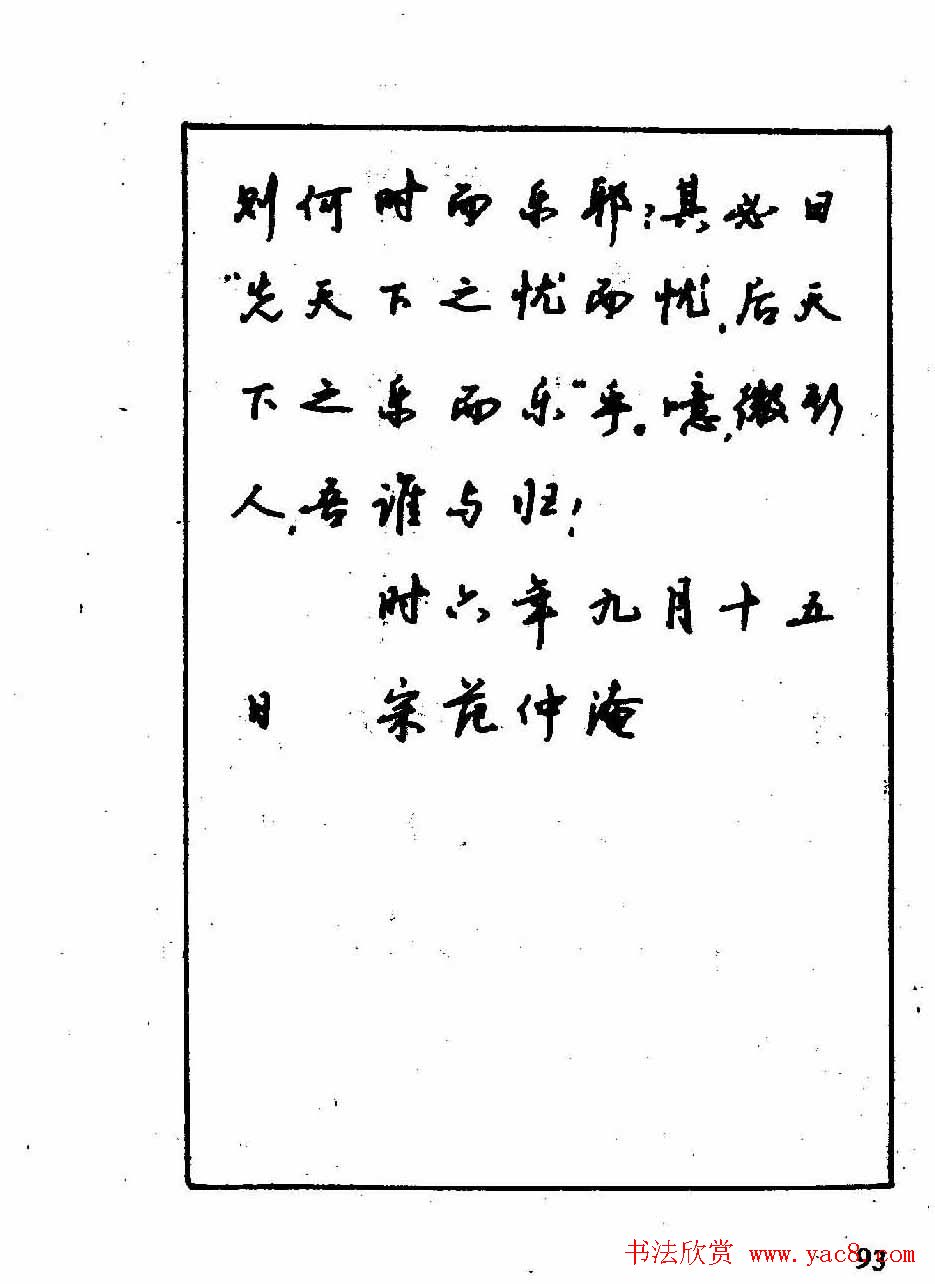 则何时而乐耶?其必曰
“先天下之忧而忧,后天
下之乐而乐”乎。噫,微斯
人,吾谁与归!
时六年九月十五
日 宋范仲淹
书法欣赏 www.yac8.com
93